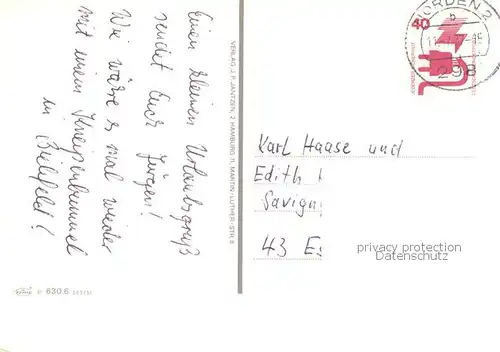 Einen kleinen Urlaubsgruß
sendet Euch Jürgen!
Wie wäre es mal wieder
mit einem Kneipenbummel
in Bielefeld!
VERLAG J. P. JANTZEN, 2 HAMBURG 11, MARTIN-LUTHER-STR. 8
630.6
NORDEN 2
b
298
40
Karl Haase und
Edith
Savign
43 Es
privacy protection
Datenschutz